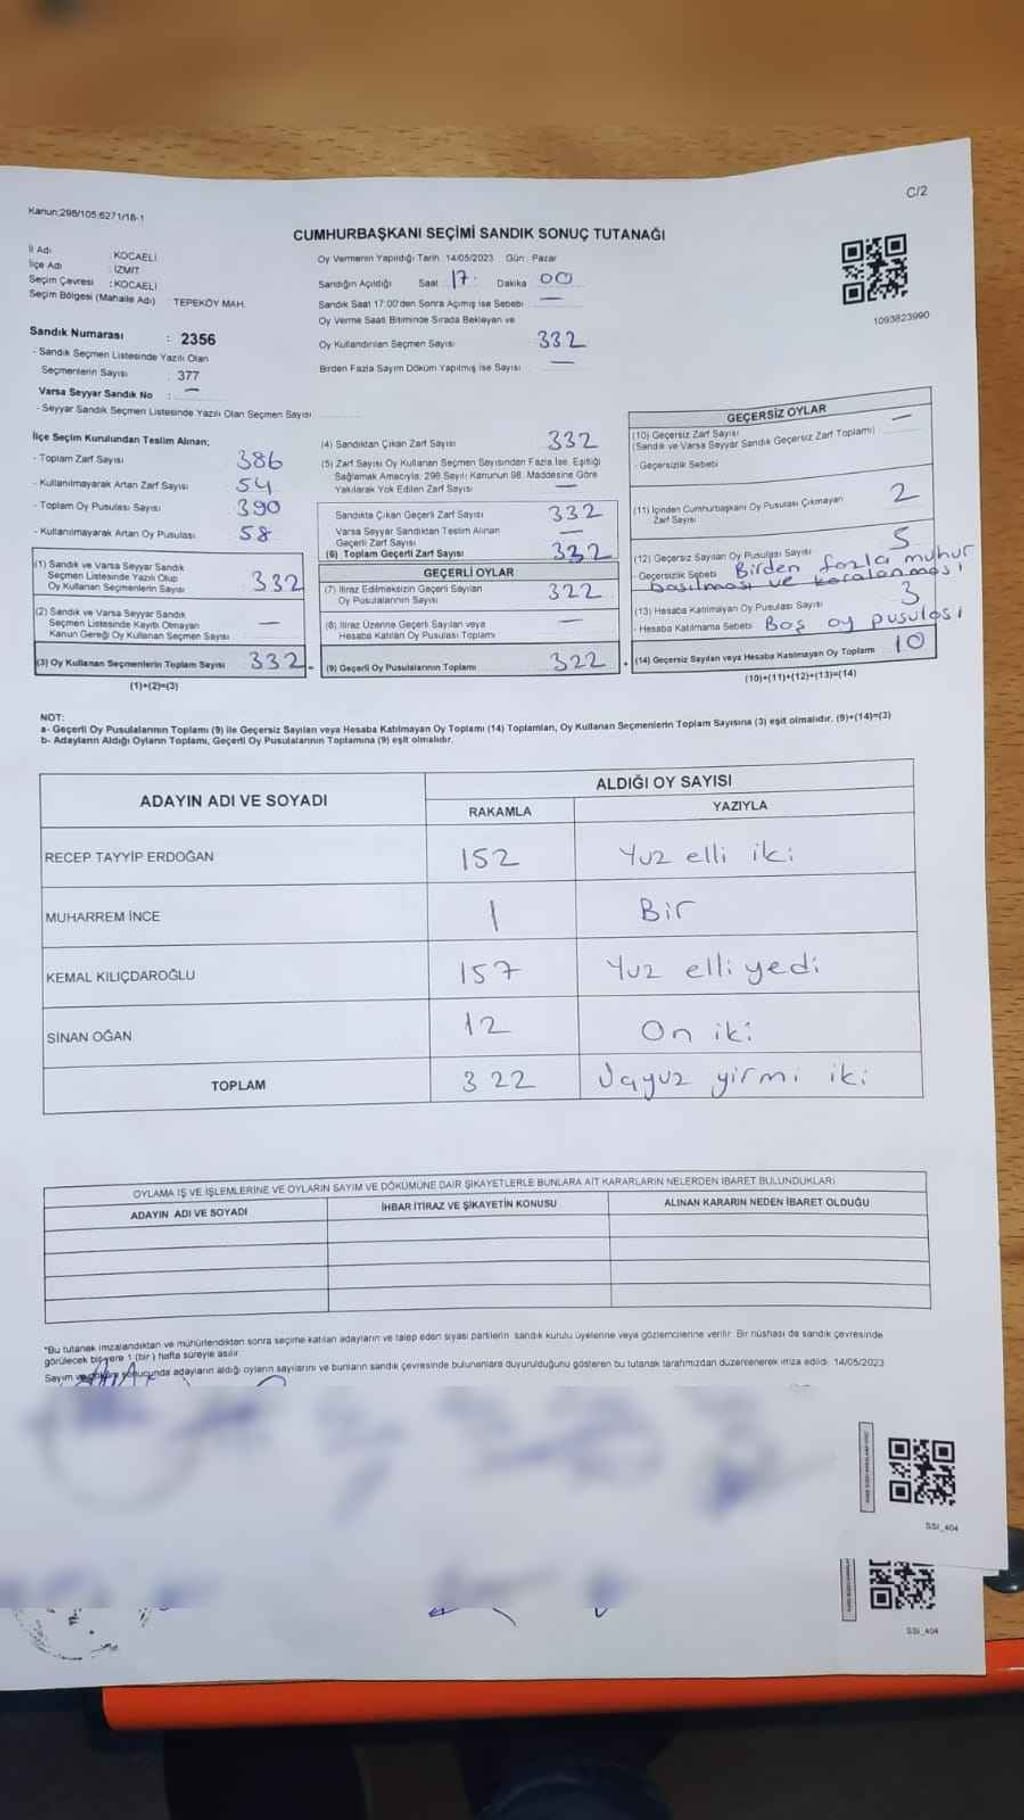 C/2
Kanun:298/105,6271/18-1
CUMHURBAŞKANI SEÇİMİ SANDIK SONUÇ TUTANAĞI
İl Adı : KOCAELİ
İlçe Adı : İZMİT
Seçim Çevresi : KOCAELİ
Seçim Bölgesi (Mahalle Adı) TEPEKÖY MAH.
Oy Vermenin Yapıldığı Tarih 14/05/2023 Gün : Pazar
Sandığın Açıldığı Saat 17: Dakika 00
Sandık Saat 17:00'den Sonra Açılmış ise Sebebi —
Oy Verme Saati Bitiminde Sırada Bekleyen ve
Oy Kullandırılan Seçmen Sayısı 332
Birden Fazla Sayım Döküm Yapılmış ise Sayısı —
1093823990
Sandık Numarası : 2356
- Sandık Seçmen Listesinde Yazılı Olan
Seçmenlerin Sayısı : 377
Varsa Seyyar Sandık No : —
- Seyyar Sandık Seçmen Listesinde Yazılı Olan Seçmen Sayısı
İlçe Seçim Kurulundan Teslim Alınan;
- Toplam Zarf Sayısı 386
- Kullanılmayarak Artan Zarf Sayısı 54
- Toplam Oy Pusulası Sayısı 390
- Kullanılmayarak Artan Oy Pusulası 58
(1) Sandık ve Varsa Seyyar Sandık
Seçmen Listesinde Yazılı Olup
Oy Kullanan Seçmenlerin Sayısı 332
(2) Sandık ve Varsa Seyyar Sandık
Seçmen Listesinde Kayıtlı Olmayan
Kanun Gereği Oy Kullanan Seçmen Sayısı —
(3) Oy Kullanan Seçmenlerin Toplam Sayısı 332
(1)+(2)=(3)
(4) Sandıktan Çıkan Zarf Sayısı 332
(5) Zarf Sayısı Oy Kullanan Seçmen Sayısından Fazla İse, Eşitliği
Sağlamak Amacıyla, 298 Sayılı Kanunun 98. Maddesine Göre
Yakılarak Yok Edilen Zarf Sayısı —
Sandıkta Çıkan Geçerli Zarf Sayısı 332
Varsa Seyyar Sandıktan Teslim Alınan
Geçerli Zarf Sayısı —
(6) Toplam Geçerli Zarf Sayısı 332
GEÇERLİ OYLAR
(7) İtiraz Edilmeksizin Geçerli Sayılan
Oy Pusulalarının Sayısı 322
(8) İtiraz Üzerine Geçerli Sayılan veya
Hesaba Katılan Oy Pusulası Toplamı —
(9) Geçerli Oy Pusulalarının Toplamı 322
GEÇERSİZ OYLAR
(10) Geçersiz Zarf Sayısı —
(Sandık ve Varsa Seyyar Sandık Geçersiz Zarf Toplamı)
- Geçersizlik Sebebi
(11) İçinden Cumhurbaşkanı Oy Pusulası Çıkmayan
Zarf Sayısı 2
(12) Geçersiz Sayılan Oy Pusulası Sayısı 5
- Geçersizlik Sebebi Birden fazla mühür
basılması ve karalanması
(13) Hesaba Katılmayan Oy Pusulası Sayısı 3
- Hesaba Katılmama Sebebi Boş oy pusulası
(14) Geçersiz Sayılan veya Hesaba Katılmayan Oy Toplamı 10
(10)+(11)+(12)+(13)=(14)
NOT:
a- Geçerli Oy Pusulalarının Toplamı (9) ile Geçersiz Sayılan veya Hesaba Katılmayan Oy Toplamı (14) Toplamları, Oy Kullanan Seçmenlerin Toplam Sayısına (3) eşit olmalıdır. (9)+(14)=(3)
b- Adayların Aldığı Oyların Toplamı, Geçerli Oy Pusulalarının Toplamına (9) eşit olmalıdır.
ADAYIN ADI VE SOYADI
ALDIĞI OY SAYISI
RAKAMLA YAZIYLA
RECEP TAYYİP ERDOĞAN 152 Yuz elli iki
MUHARREM İNCE 1 Bir
KEMAL KILIÇDAROĞLU 157 Yuz elli yedi
SİNAN OĞAN 12 On iki
TOPLAM 322 Üçyuz yirmi iki
OYLAMA İŞ VE İŞLEMLERİNE VE OYLARIN SAYIM VE DÖKÜMÜNE DAİR ŞİKAYETLERLE BUNLARA AİT KARARLARIN NELERDEN İBARET BULUNDUKLARI
ADAYIN ADI VE SOYADI İHBAR İTİRAZ VE ŞİKAYETİN KONUSU ALINAN KARARIN NEDEN İBARET OLDUĞU
*Bu tutanak imzalandıktan ve mühürlendikten sonra seçime katılan adayların ve talep eden siyasi partilerin sandık kurulu üyelerine veya gözlemcilerine verilir. Bir nüshası da sandık çevresinde
görülecek bir yere 1 (bir) hafta süreyle asılır.
Sayım ve döküm sonucunda adayların aldığı oyların sayılarını ve bunların sandık çevresinde bulunanlara duyurulduğunu gösteren bu tutanak tarafımızdan düzenlenerek imza edildi. 14/05/2023
SSI_404
SSI_404